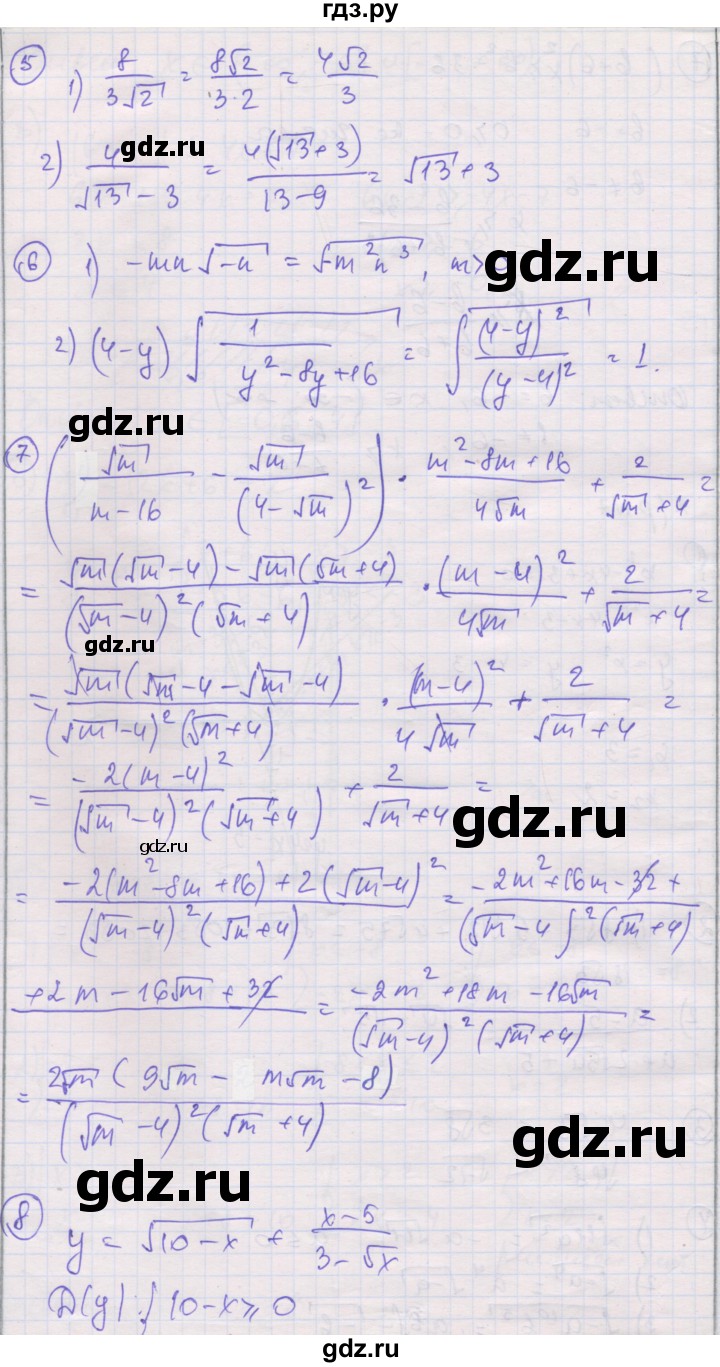 гдз.ру
⑤ 1) 8/(3√2) = 8√2/(3·2) = 4√2/3
gdz.ru
2) 4/(√13 - 3) = 4(√13 + 3)/(13 - 9) = √13 + 3
gdz.ru
⑥ 1) -mn√(-n) = √(-m²n³), m>
gdz.ru
2) (4-y)√(1/(y² - 8y + 16)) = √((4-y)²/(y-4)²) = 1.
gdz.ru
⑦ (√m/(m-16) - √m/(4-√m)²) · (m² - 8m + 16)/(4√m) + 2/(√m + 4) =
= (√m(√m - 4) - √m(√m + 4))/((√m - 4)²(√m + 4)) · (m - 4)²/(4√m) + 2/(√m + 4) =
gdz.ru
= √m(√m - 4 - √m - 4)/((√m - 4)²(√m + 4)) · (m-4)²/(4√m) + 2/(√m + 4) =
gdz.ru
= -2(m-4)²/((√m - 4)²(√m + 4)) + 2/(√m + 4) =
gdz.ru
= (-2(m² - 8m + 16) + 2(√m - 4)²)/((√m - 4)²(√m + 4)) = (-2m² + 16m - 32 +)/((√m - 4)²(√m + 4))
gdz.ru
+2m - 16√m + 32 = (-2m² + 18m - 16√m)/((√m - 4)²(√m + 4)) =
gdz.ru
= 2√m(9√m - m√m - 8)/((√m - 4)²(√m + 4))
gdz.ru
gdz.ru
⑧ y = √(10 - x) + (x - 5)/(3 - √x)
gdz.ru
D(y): { 10 - x ≥ 0
gdz.ru